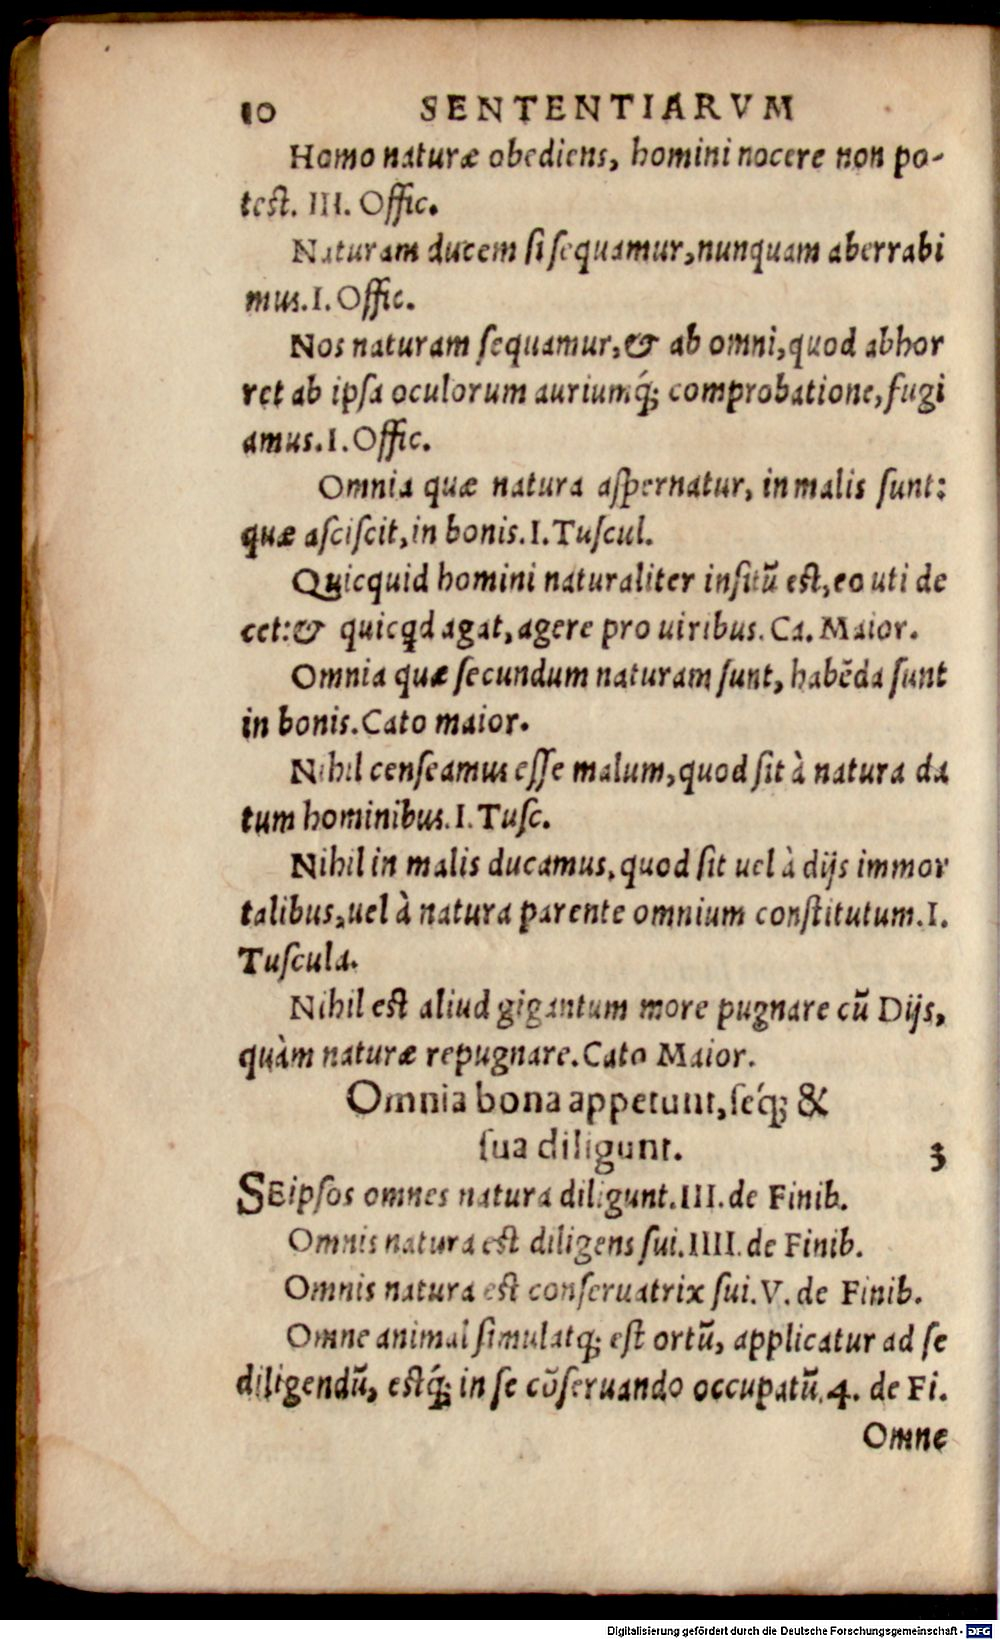 10 SENTENTIARVM
Homo naturæ obediens, homini nocere non po-
test. III. Offic.
Naturam ducem si sequamur, nunquam aberrabi
mus. I. Offic.
Nos naturam sequamur, & ab omni, quod abhor
ret ab ipsa oculorum auriumq́; comprobatione, fugi
amus. I. Offic.
Omnia quæ natura aspernatur, in malis sunt:
quæ asciscit, in bonis. I. Tuscul.
Quicquid homini naturaliter insitū est, eo uti de
cet: & quicꝗd agat, agere pro uiribus. Ca. Maior.
Omnia quæ secundum naturam sunt, habēda sunt
in bonis. Cato maior.
Nihil censeamus esse malum, quod sit à natura da
tum hominibus. I. Tusc.
Nihil in malis ducamus, quod sit uel à dijs immor
talibus, uel à natura parente omnium constitutum. I.
Tuscula.
Nihil est aliud gigantum more pugnare cū Dijs,
quàm naturæ repugnare. Cato Maior.
Omnia bona appetunt, seq́; &
sua diligunt. 3
SEipsos omnes natura diligunt. III. de Finib.
Omnis natura est diligens sui. IIII. de Finib.
Omnis natura est conseruatrix sui. V. de Finib.
Omne animal simulatq; est ortū, applicatur ad se
diligendū, estq́; in se cōseruando occupatū. 4. de Fi.
Omne
Digitalisierung gefördert durch die Deutsche Forschungsgemeinschaft - DFG